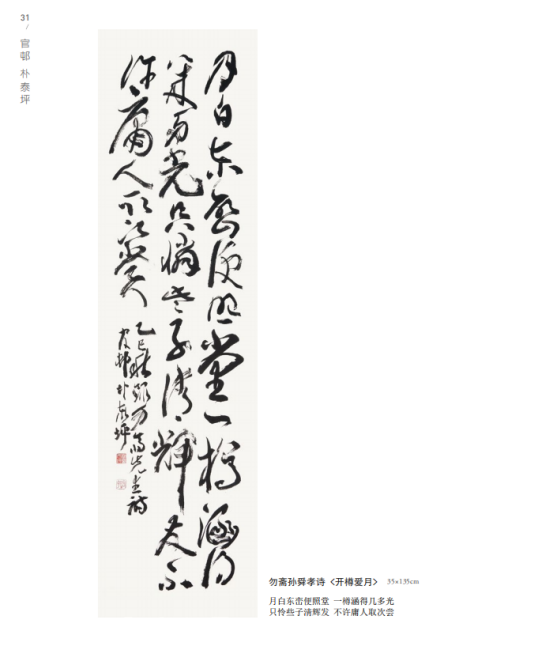 31
/
官邨 朴泰坪
月白东峦便照堂一樽涵得
几多光只憐些子清輝发不
许庸人取次嘗
乙巳秋录勿斋先生诗
官邨朴泰坪
勿斋孙舜孝诗〈开樽爱月〉 35×135cm
月白东峦便照堂 一樽涵得几多光
只怜些子清辉发 不许庸人取次尝